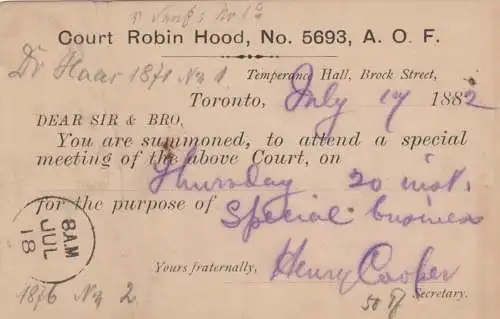 Court Robin Hood, No. 5693, A. O. F.
Dr Haar 1871 No 1.
Temperance Hall, Brock Street,
Toronto, July 17 1882
DEAR SIR & BRO.
You are summoned, to attend a special
meeting of the above Court, on
Thursday 20 inst.
for the purpose of Special business
8AM
JUL
18
Yours fraternally, Henry Cooper
Secretary.
1876 No 2.
50